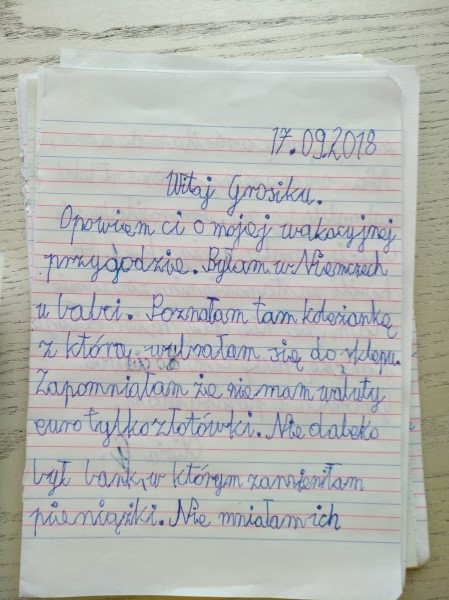 17.09.2018
Witaj Grosiku.
Opowiem ci o mojej wakacyjnej
przygodzie. Byłam w Niemczech
u babci. Poznałam tam koleżankę
z którą wybrałam się do sklepu.
Zapomniałam że nie mam waluty
euro tylko złotówki. Nie daleko
był bank, w którym zamieniłam
pieniążki. Nie mniałam ich